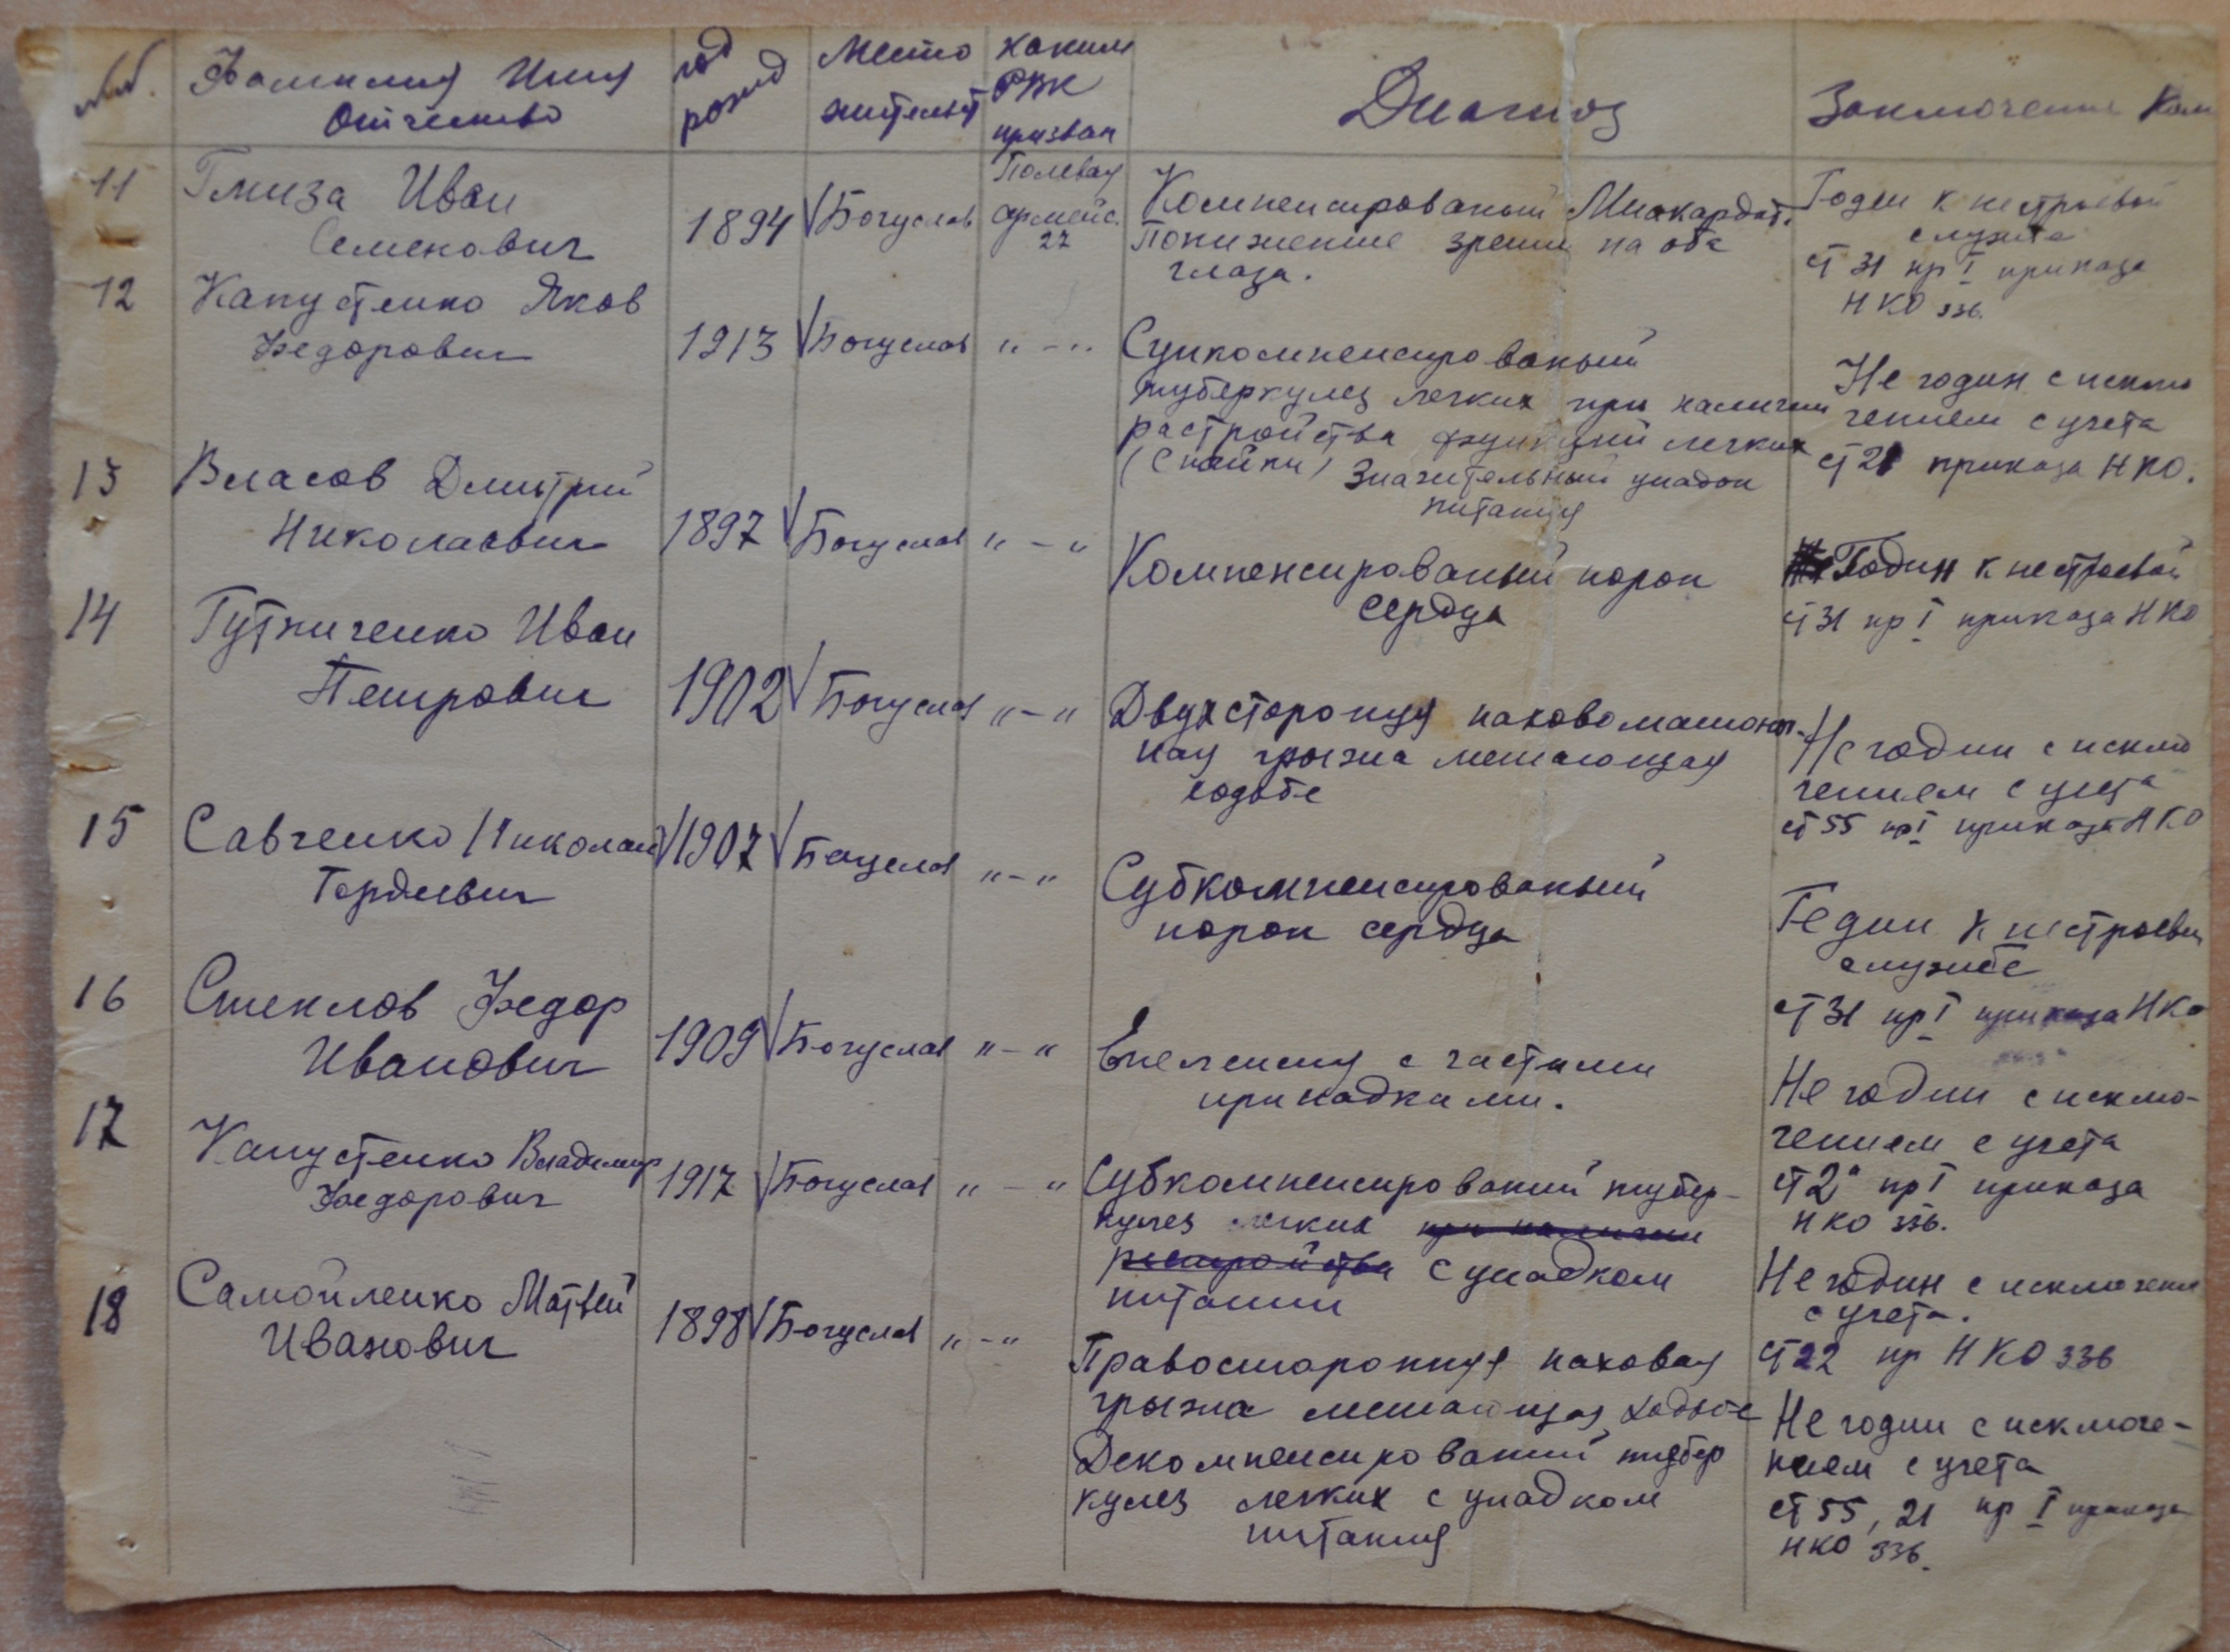 №№. Фамилия Имя Отчество
год рожд
Место жительст
каким РВК призван
Диагноз
Заключение Ком
11 Гмиза Иван
Семенович
1894 √ Богуслав
Полевая
армейс.
27
Компенсированый Миокардат.
Понижение зрения на оба
глаза.
Годен к нестроевой
службе
ст 31 пр I приказа
НКО 336.
12 Капустенко Яков
Федорович
1913 √ Богуслав " - "
Супкомпенсированый
туберкулез легких при наличии
растройства функций легких
(Спайки) Значительный упадок
питания
Не годин с исклю
чением с учета
ст 21 приказа НКО.
13 Власов Дмитрий
Николаевич
1897 √ Богуслав " - "
Компенсированый порок
сердца
Годин к нестроевой
ст 31 пр I приказа НКО
14 Гутниченко Иван
Петрович
1902 √ Богуслав " - "
Двухсторонняя паховомашоноч-
ная грызжа мешающая
ходьбе
Не годин с исклю
чением с учета
ст 55 пр I приказа НКО
15 Савченко Николай
Гордиевич
√ 1907 √ Богуслав " - "
Субкомпенсированый
порок сердца
Годин к нестроевой
службе
ст 31 пр I приказа НКО
16 Стеклов Федор
Иванович
1909 √ Богуслав " - "
Епелепсия с частыми
припадками.
Не годин с исклю-
чением с учета
ст 2а пр I приказа
НКО 336.
17 Капустенко Владимир
Федорович
1917 √ Богуслав " - "
Субкомпенсирований тубер-
кулез легких при наличии
растройства с упадком
питании
Не годин с исключени
с учета.
ст 22 пр НКО 336
18 Самойленко Матвей
Иванович
1898 √ Богуслав " - "
Правосторонняя паховая
грызжа мешающая ходьбе
Декомпенсирований тубер
кулез легких с упадком
питания
Не годин с исключе-
нием с учета
ст 55, 21 пр I приказа
НКО 336.